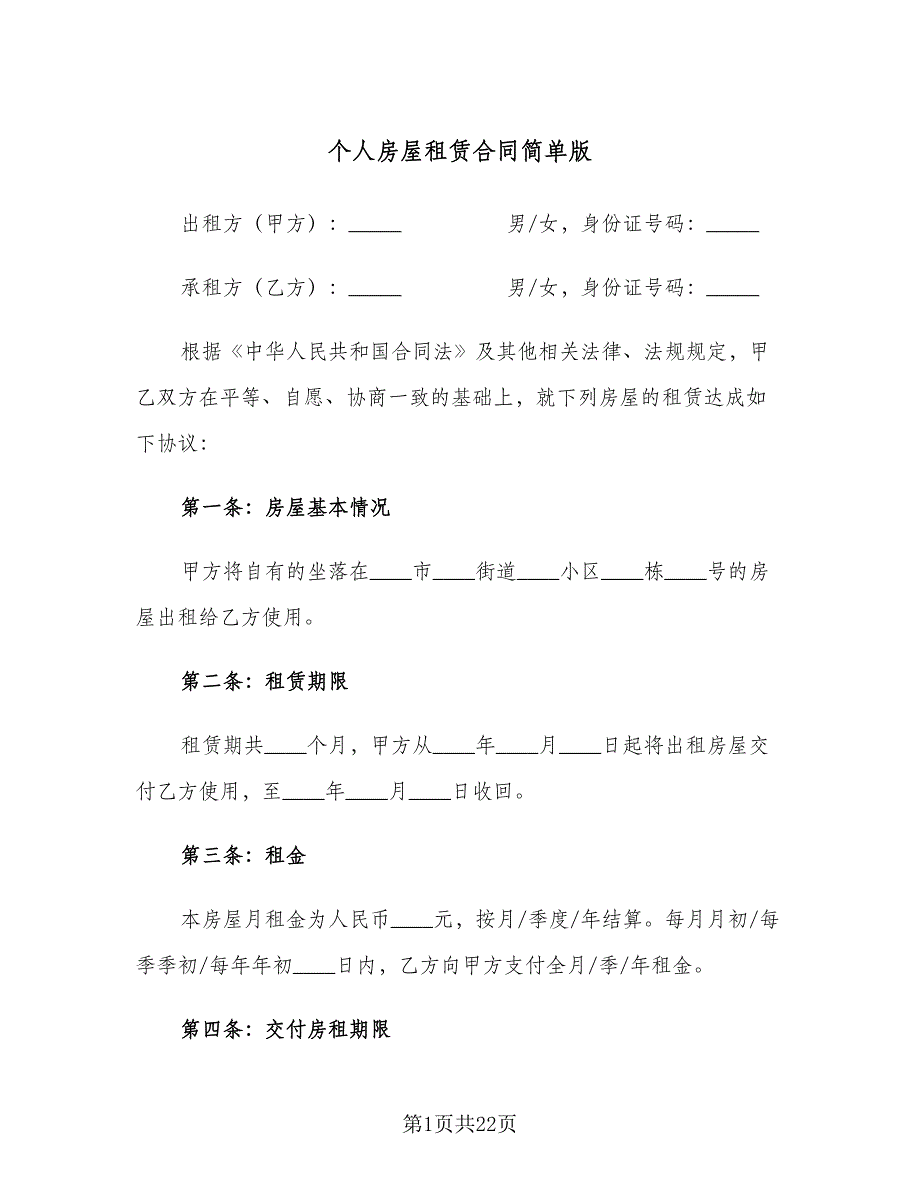 个人房屋租赁合同简单版
出租方（甲方）：_____ 男/女，身份证号码：_____
承租方（乙方）：_____ 男/女，身份证号码：_____
根据《中华人民共和国合同法》及其他相关法律、法规规定，甲
乙双方在平等、自愿、协商一致的基础上，就下列房屋的租赁达成如
下协议：
第一条：房屋基本情况
甲方将自有的坐落在____市____街道____小区____栋____号的房
屋出租给乙方使用。
第二条：租赁期限
租赁期共____个月，甲方从____年____月____日起将出租房屋交
付乙方使用，至____年____月____日收回。
第三条：租金
本房屋月租金为人民币____元，按月/季度/年结算。每月月初/每
季季初/每年年初____日内，乙方向甲方支付全月/季/年租金。
第四条：交付房租期限
第1页共22页